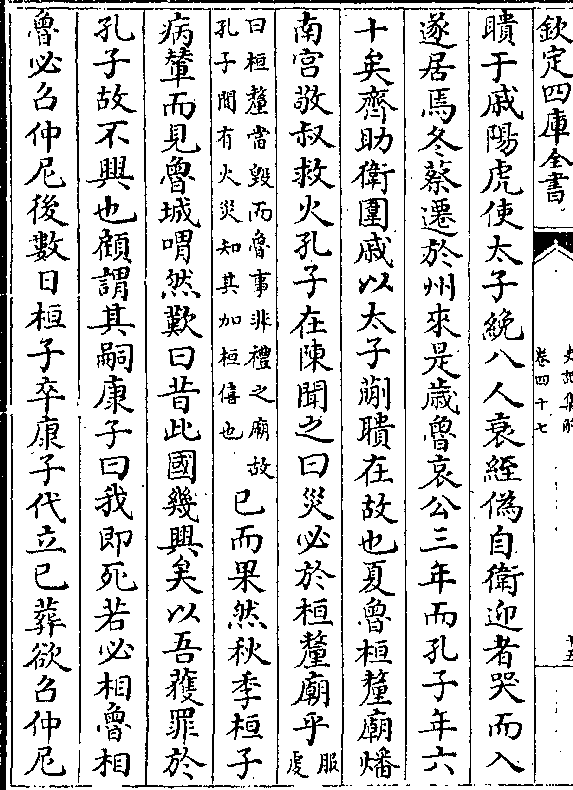 欽定四庫全書
史記集解
卷四十七
聵于戚陽虎使太子絻八人衰絰偽自衛迎者哭而入
遂居焉冬蔡遷於州來是歲魯哀公三年而孔子年六
十矣齊助衛圍戚以太子蒯聵在故也夏魯桓釐廟燔
南宮敬叔救火孔子在陳聞之曰災必於桓釐廟乎服虔
曰桓釐當毀而魯事非禮之廟故
孔子聞有火災知其加桓僖也
已而果然秋季桓子
病輦而見魯城喟然歎曰昔此國幾興矣以吾獲罪於
孔子故不興也顧謂其嗣康子曰我即死若必相魯相
魯必召仲尼後數日桓子卒康子代立已葬欲召仲尼